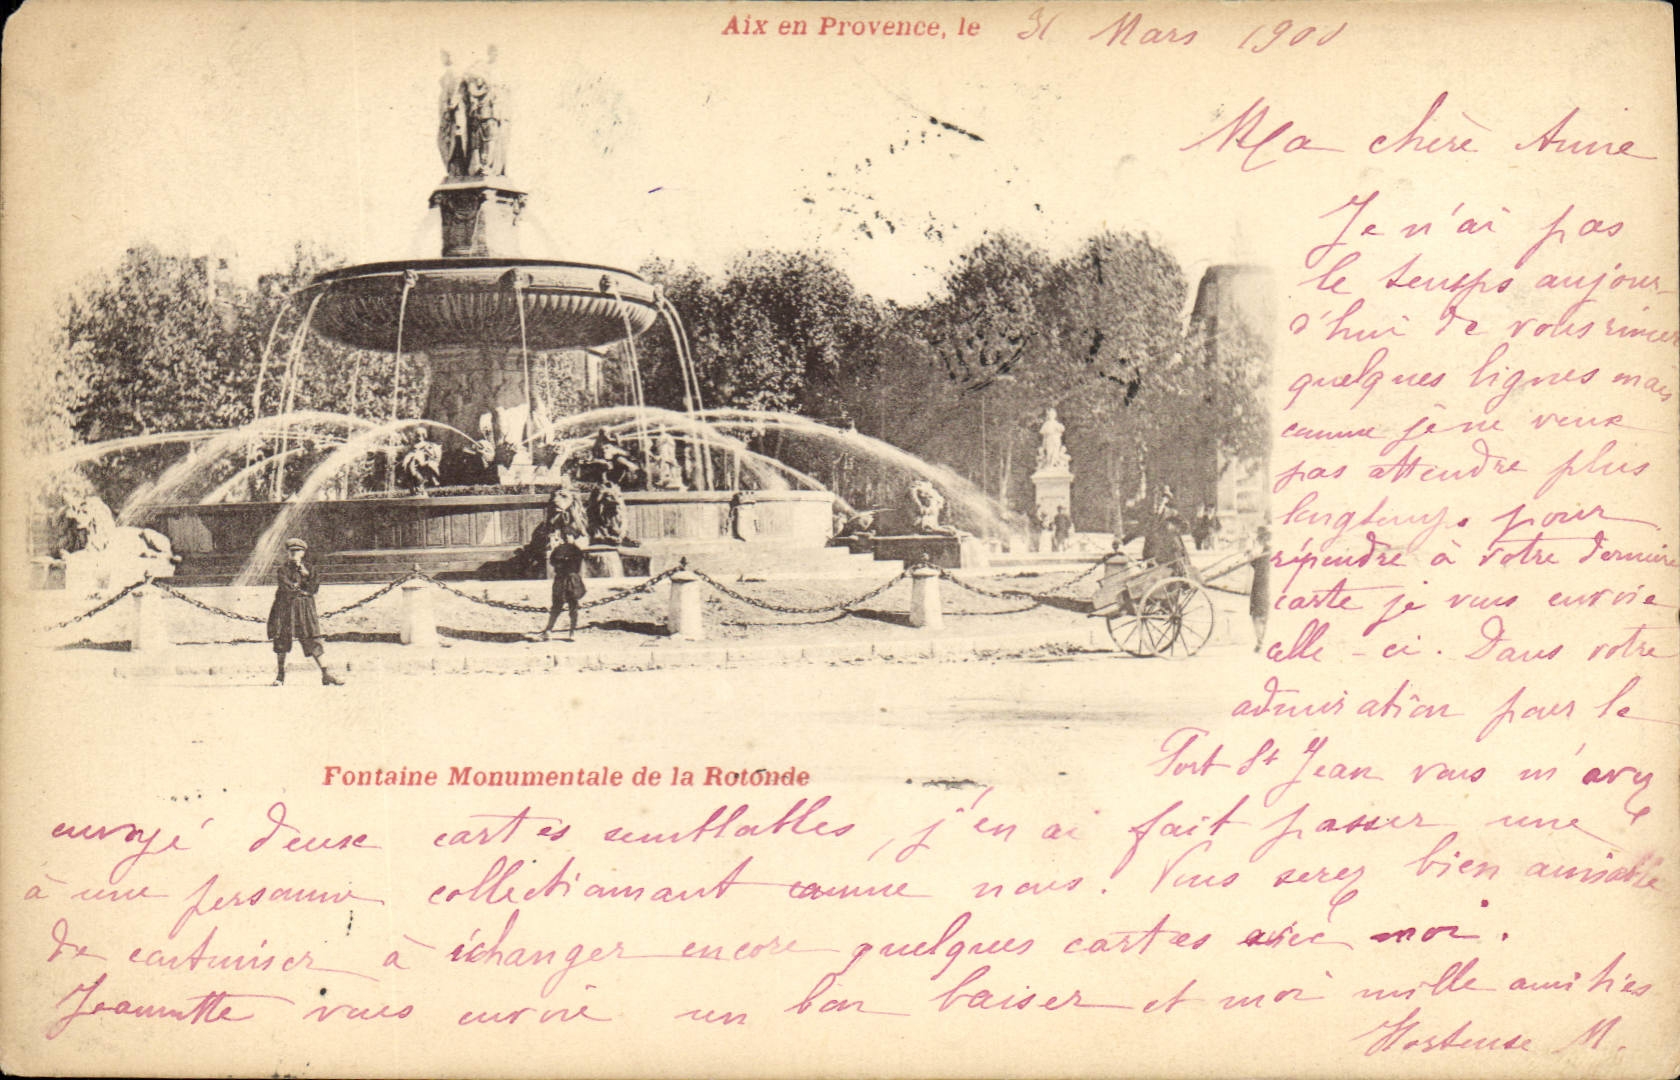 Aix en Provence, le 31 Mars 1900
Ma chère Anne
Je n'ai pas
le temps aujour-
d'hui de vous rimer
quelques lignes mais
comme je ne veux
pas attendre plus
longtemps pour
répondre à votre dernière
carte je vous envoie
celle-ci. Dans votre
admiration pour le
Fort St Jean vous m'avez
envoyé deux cartes semblables, j'en ai fait passer une
à une personne collectionnant comme nous. Vous serez bien aimable
de continuer à échanger encore quelques cartes avec moi.
Jeannette vous envoie un bon baiser et moi mille amitiés
Hortense M.
Fontaine Monumentale de la Rotonde